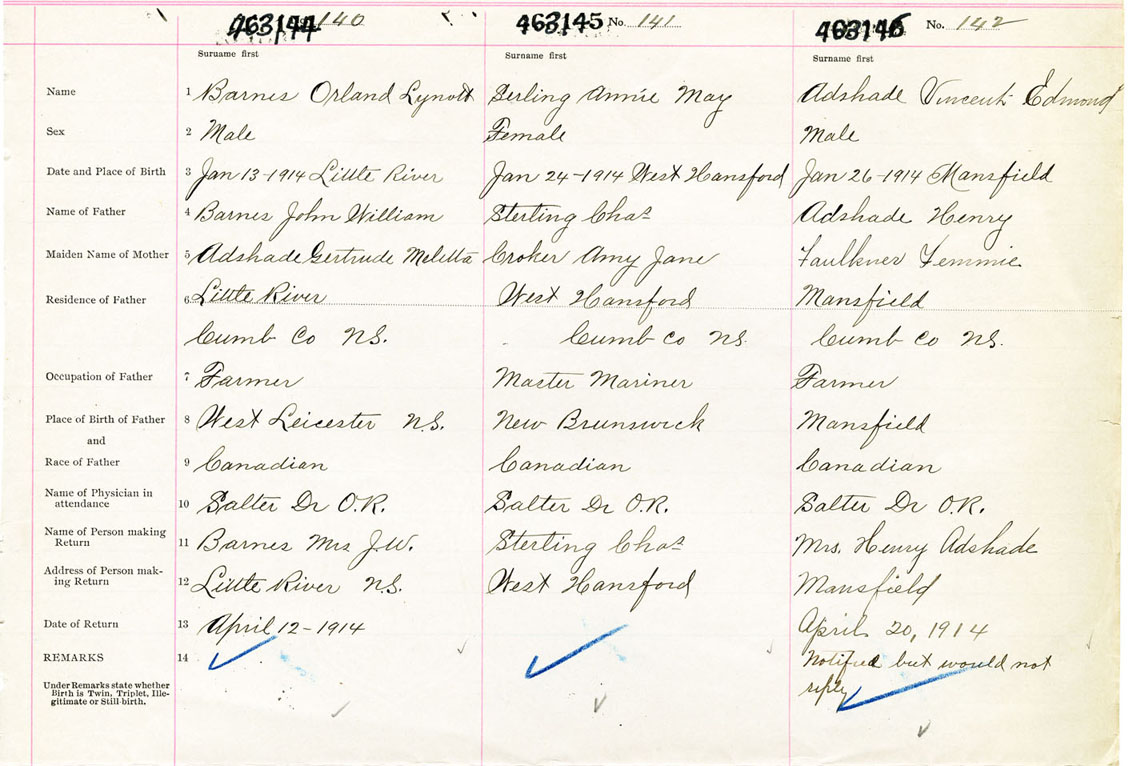 463144 140 463145 No. 141 463146 No. 142
Surname first Surname first Surname first
Name 1 Barnes Orland Lynott Serling Annie May Adshade Vincent Edmond
Sex 2 Male Female Male
Date and Place of Birth 3 Jan 13-1914 Little River Jan 24-1914 West Hansford Jan 26-1914 Mansfield
Name of Father 4 Barnes John William Sterling Chas Adshade Henry
Maiden Name of Mother 5 Adshade Gertrude Meletta Croker Amy Jane Faulkner Femmie
Residence of Father 6 Little River West Hansford Mansfield
Cumb Co N.S. Cumb Co N.S. Cumb Co N.S.
Occupation of Father 7 Farmer Master Mariner Farmer
Place of Birth of Father 8 West Leicester N.S. New Brunswick Mansfield
and
Race of Father 9 Canadian Canadian Canadian
Name of Physician in
attendance 10 Salter Dr O.R. Salter Dr O.R. Salter Dr O.R.
Name of Person making
Return 11 Barnes Mrs J.W. Sterling Chas Mrs. Henry Adshade
Address of Person mak-
ing Return 12 Little River N.S. West Hansford Mansfield
Date of Return 13 April 12-1914 April 20, 1914
REMARKS 14 Notified but would not
reply
Under Remarks state whether
Birth is Twin, Triplet, Ille-
gitimate or Still-birth.